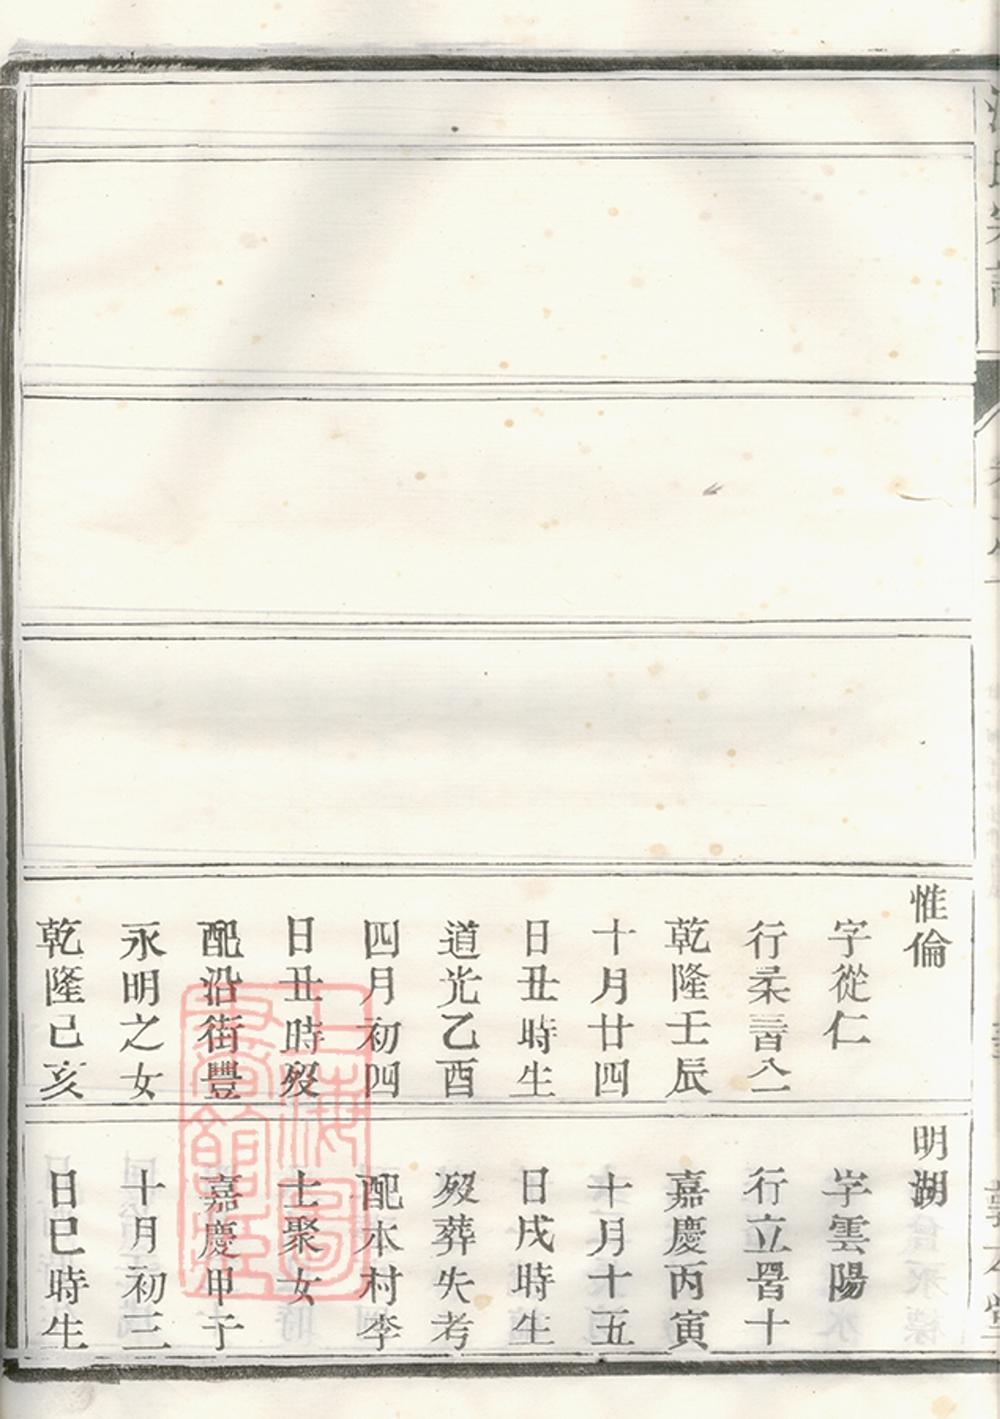 惟倫
字從仁
行柔
乾隆壬辰
十月廿四
日丑時生
道光乙酉
四月初四
日丑時歿
配沿街豐
永明之女
乾隆己亥
明湖
字雲陽
行立詈十
嘉慶丙寅
十月十五
日戌時生
歿葬失考
配本村李
士聚女
嘉慶甲子
十月初三
日巳時生
上海圖書館藏